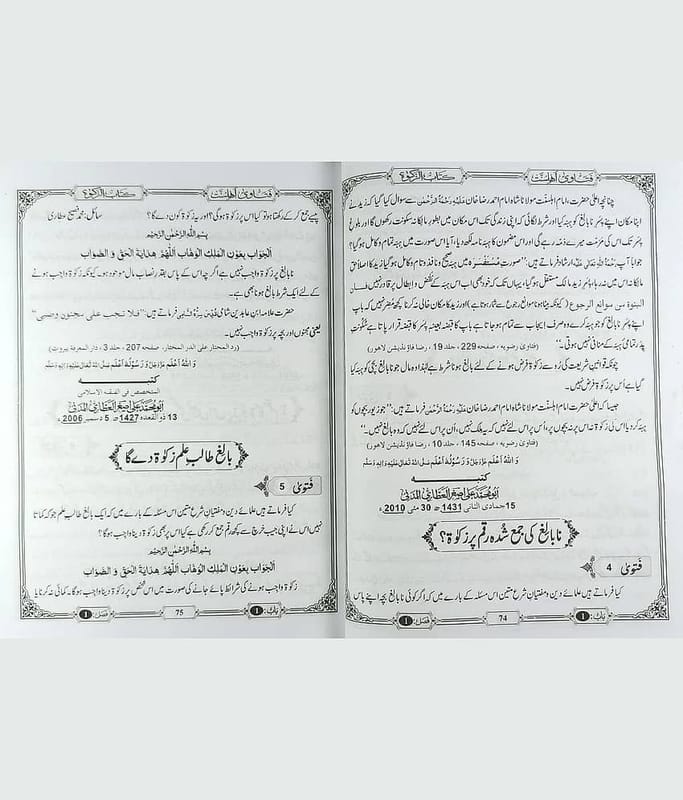 فتاویٰ اہلسنت
کتاب الزکوٰۃ
چنانچہ اعلیٰ حضرت، امام اہلسنت مولانا شاہ امام احمد رضا خان عَلَیْہِ رَحْمَۃُ الرَّحْمٰن سے سوال کیا گیا کہ زید نے
اپنا مکان اپنے پسر نابالغ کو ہبہ کیا اور شرط لگائی کہ اپنی زندگی تک اس مکان میں بطور مالکانہ سکونت رکھوں گا اور بلوغِ
پسر تک اس کی مرمت میرے ذمہ رہے گی اور اس مضمون کا ہبہ نامہ لکھ دیا، آیا اس صورت میں ہبہ تمام و کامل ہوگیا؟
جواباً آپ رَحْمَۃُ اللہِ تَعَالٰی عَلَیْہ ارشاد فرماتے ہیں: ”صورتِ مُسْتَفْسَرَہ میں ہبہ صحیح و نافذ و تام و کامل ہوگیا زید کا علاقہ
مالکانہ اس میں نہ رہا، پسرِ زید مالکِ مستقل ہوگیا، یہاں تک کہ خود بھی اب اس ہبہ کے نقض و ابطال پر قادر نہیں
البنوۃ من موانع الرجوع (کیونکہ بیٹا ہونا موانعِ رجوع سے شمار ہوتا ہے) اور زید کا مکان خالی نہ کرنا کچھ مُضر نہیں کہ باپ
اپنے پسر نابالغ کو جو ہبہ کرے وہ صرف ایجاب سے تمام ہوجاتا ہے باپ کا قبضہ بعینہٖ پسر کا قبضہ قرار پاتا ہے
پدر تمامی ہبہ کے منافی نہیں ہوتی۔“
(فتاویٰ رضویہ، صفحہ 229، جلد 19، رضا فاؤنڈیشن لاہور)
چونکہ قوانینِ شریعت کی رُو سے زکوٰۃ فرض ہونے کے لئے بالغ ہونا شرط ہے لہٰذا وہ مال جو نابالغ بچی کو ہبہ کیا
گیا ہے اُس پر زکوٰۃ فرض نہیں۔
جیسا کہ اعلیٰ حضرت امام اہلسنت مولانا شاہ امام احمد رضا خان عَلَیْہِ رَحْمَۃُ الرَّحْمٰن فرماتے ہیں: ”جو زیور بچوں کو
ہبہ کردیا اس کی زکوٰۃ نہ اس پر نہ بچوں پر، اُس پر اس لئے نہیں کہ یہ ملک نہیں، اُن پر اس لئے نہیں کہ وہ نابالغ نہیں۔“
(فتاویٰ رضویہ، صفحہ 145، جلد 10، رضا فاؤنڈیشن لاہور)
وَ اللہُ اَعْلَمُ عَزَّوَجَلَّ وَ رَسُوْلُہ اَعْلَم صَلَّی اللہُ تَعَالٰی عَلَیْہِ وَاٰلِہٖ وَسَلَّم
کتبــــــــــہ
ابو محمد علی اصغر العطاری المدنی
15 جمادی الثانی 1431ھ 30 مئی 2010ء
نابالغ کی جمع شدہ رقم پر زکوٰۃ؟
فتویٰ 4
کیا فرماتے ہیں علمائے دین و مفتیان شرع متین اس مسئلہ کے بارے میں کہ اگر کوئی نابالغ بچہ اپنے پاس
باب: 1
74
فصل: 1
فتاویٰ اہلسنت
کتاب الزکوٰۃ
پیسے جمع کر کے رکھتا ہو تو کیا اس پر زکوٰۃ ہوگی؟ اور یہ زکوٰۃ کون دے گا؟ سائل: محمد فصیح عطاری
بِسْمِ اللہِ الرَّحْمٰنِ الرَّحِیْمِ
اَلْجَوَابُ بِعَوْنِ الْمَلِکِ الْوَہَّابِ اَللّٰھُمَّ ھِدَایَۃَ الْحَقِّ وَ الصَّوَابِ
نابالغ پر زکوٰۃ واجب نہیں ہے اگرچہ اس کے پاس بقدرِ نصاب مال موجود ہو۔ کیونکہ زکوٰۃ واجب ہونے
کے لئے ایک شرط بالغ ہونا بھی ہے۔
حضرت علامہ ابن عابدین شامی فرماتے ہیں: ”فلا تجب علی مجنون وصبی“
یعنی مجنون اور بچہ پر زکوٰۃ واجب نہیں۔
(رد المحتار علی الدر المختار، صفحہ 207، جلد 3، دار المعرفۃ بیروت)
وَ اللہُ اَعْلَمُ عَزَّوَجَلَّ وَ رَسُوْلُہ اَعْلَم صَلَّی اللہُ تَعَالٰی عَلَیْہِ وَاٰلِہٖ وَسَلَّم
کتبــــــــــہ
المتخصص فی الفقہ الاسلامی
ابو محمد علی اصغر العطاری المدنی
13 ذو القعدہ 1427ھ 5 دسمبر 2006ء
بالغ طالبِ علم زکوٰۃ دے گا
فتویٰ 5
کیا فرماتے ہیں علمائے دین و مفتیان شرع متین اس مسئلہ کے بارے میں کہ ایک بالغ طالبِ علم جو کہ کماتا
نہیں اس نے اپنی جیب خرچ سے کچھ رقم جمع کر رکھی ہے کیا اس پر بھی زکوٰۃ دینا واجب ہوگا؟
بِسْمِ اللہِ الرَّحْمٰنِ الرَّحِیْمِ
اَلْجَوَابُ بِعَوْنِ الْمَلِکِ الْوَہَّابِ اَللّٰھُمَّ ھِدَایَۃَ الْحَقِّ وَ الصَّوَابِ
زکوٰۃ واجب ہونے کی شرائط پائے جانے کی صورت میں اس شخص پر زکوٰۃ دینا واجب ہوگا۔ کمائی نہ کرنا یا
باب: 1
75
فصل: 1